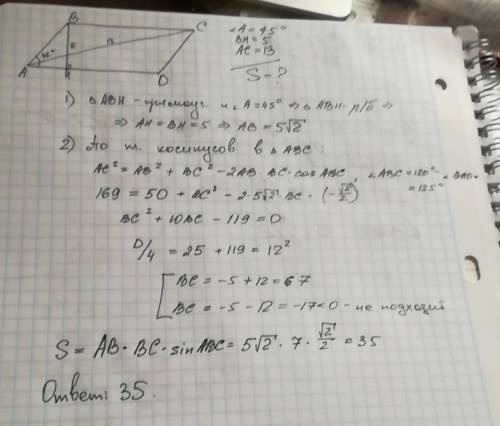 B
C
A
H
D
45°
5
13
∠A = 45°
BH = 5
AC = 13
S - ?
1) △ABH - прямоуг. и ∠A = 45° ⇒ △ABH - р/б ⇒
⇒ AH = BH = 5 ⇒ AB = 5√2
2) По т. косинусов в △ABC:
AC² = AB² + BC² - 2AB · BC · cos ABC, ∠ABC = 180° - ∠BAD =
= 135°
169 = 50 + BC² - 2 · 5√2 · BC · (-√2/2)
BC² + 10BC - 119 = 0
D/4 = 25 + 119 = 12²
[ BC = -5 + 12 = 7
BC = -5 - 12 = -17 < 0 - не подходит
S = AB · BC · sin ABC = 5√2 · 7 · √2/2 = 35
Ответ: 35.